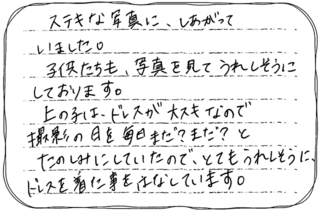 ステキな写真に、しあがって
いました。
子供たちも、写真を見て うれしそうに
しております。
上の子は、ドレスが大スキなので
撮影の日を毎日まだ？まだ？と
たのしみにしていたので、とてもうれしそうに、
ドレスを着た事をはなしています。